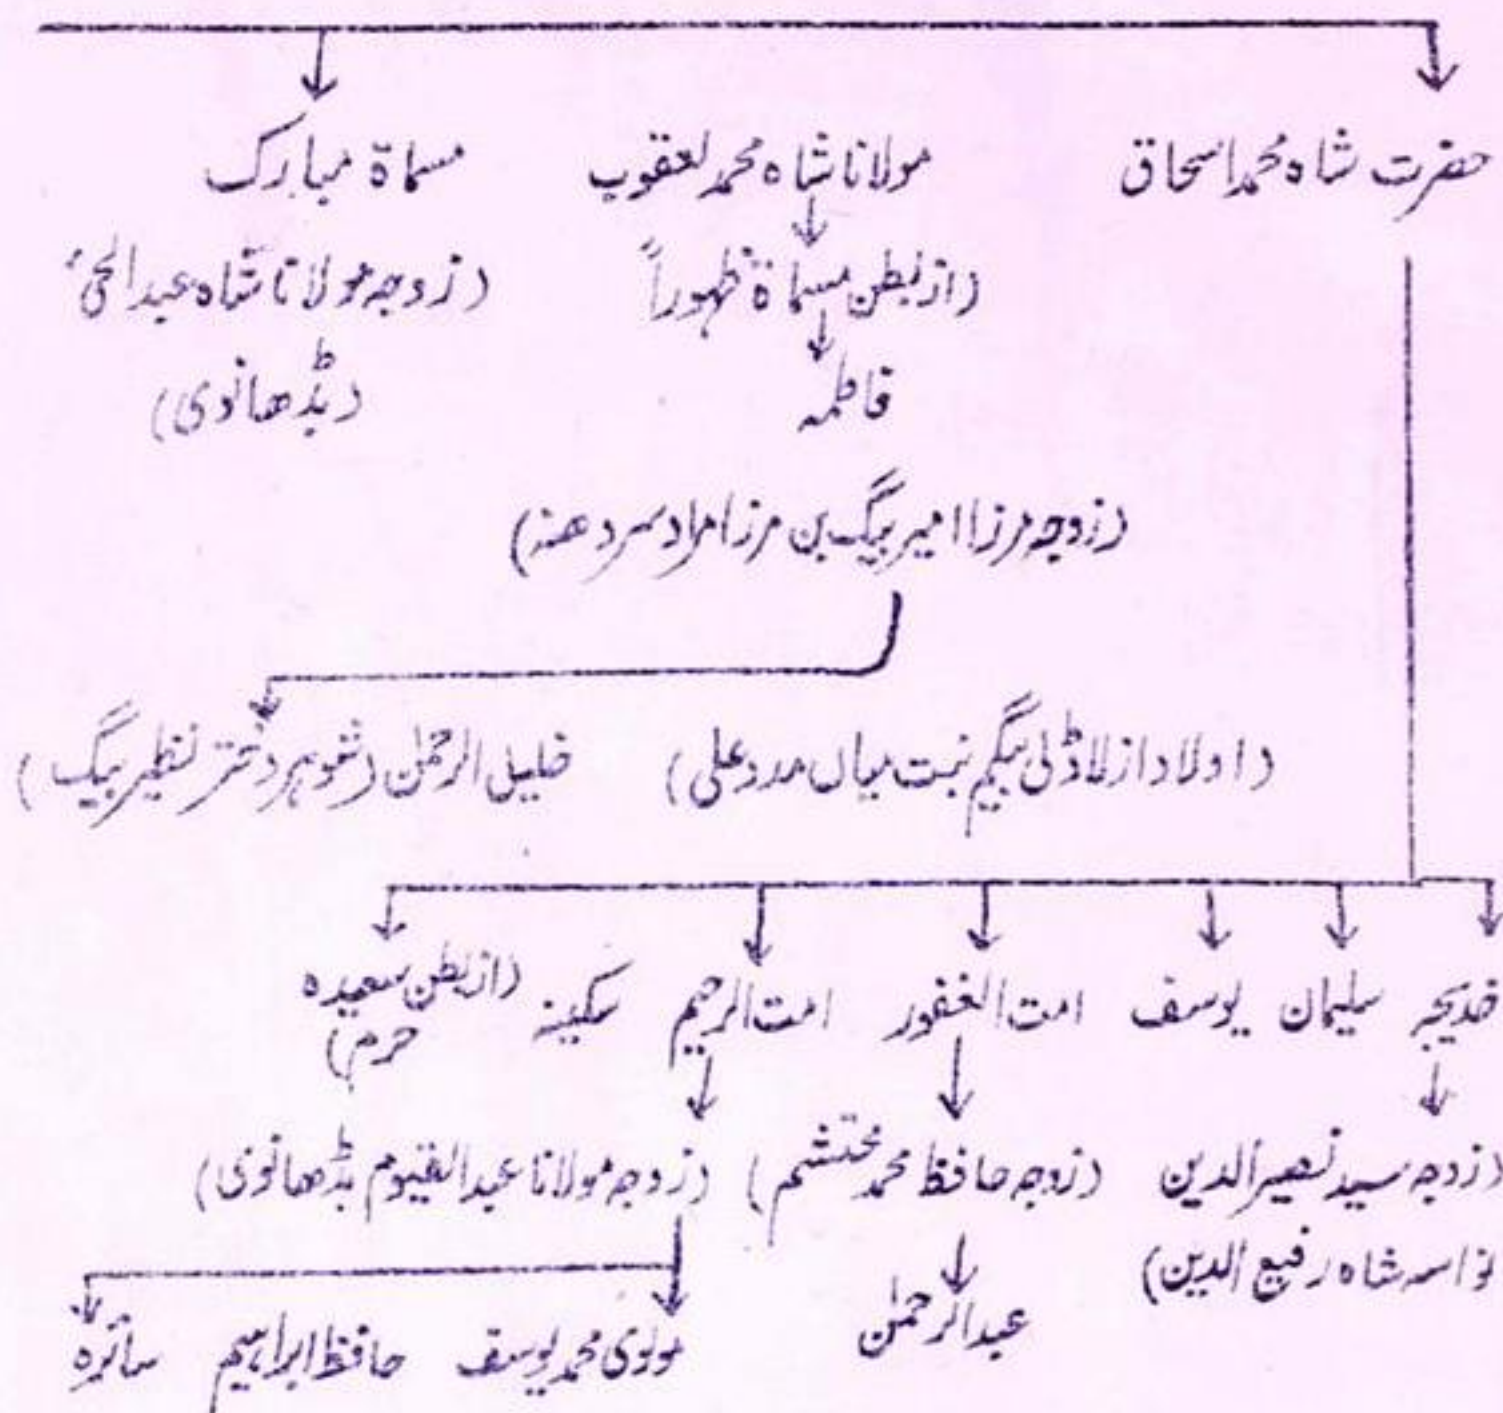 حضرت شاہ محمد اسحاق مولانا شاہ محمد یعقوب مسماۃ مبارک
(از بطن مسماۃ ظہوراً (زوجہ مولانا شاہ عبدالحئ
فاطمہ (بڈھانوی)
(زوجہ مرزا امیر بیگ بن مرزا مراد سردھنہ)
(اولاد از لاڈلی بیگم بنت میاں مدد علی) خلیل الرحمٰن (شوہر دختر نظیر بیگ)
خدیجہ سلیمان یوسف امت الغفور امت الرحیم سکینہ (از بطن سعیدہ
حرم)
(زوجہ سید نصیر الدین (زوجہ حافظ محمد محتشم) (زوجہ مولانا عبدالقیوم بڈھانوی)
نواسہ شاہ رفیع الدین)
عبدالرحمٰن
مولوی محمد یوسف حافظ ابراہیم سائرہ